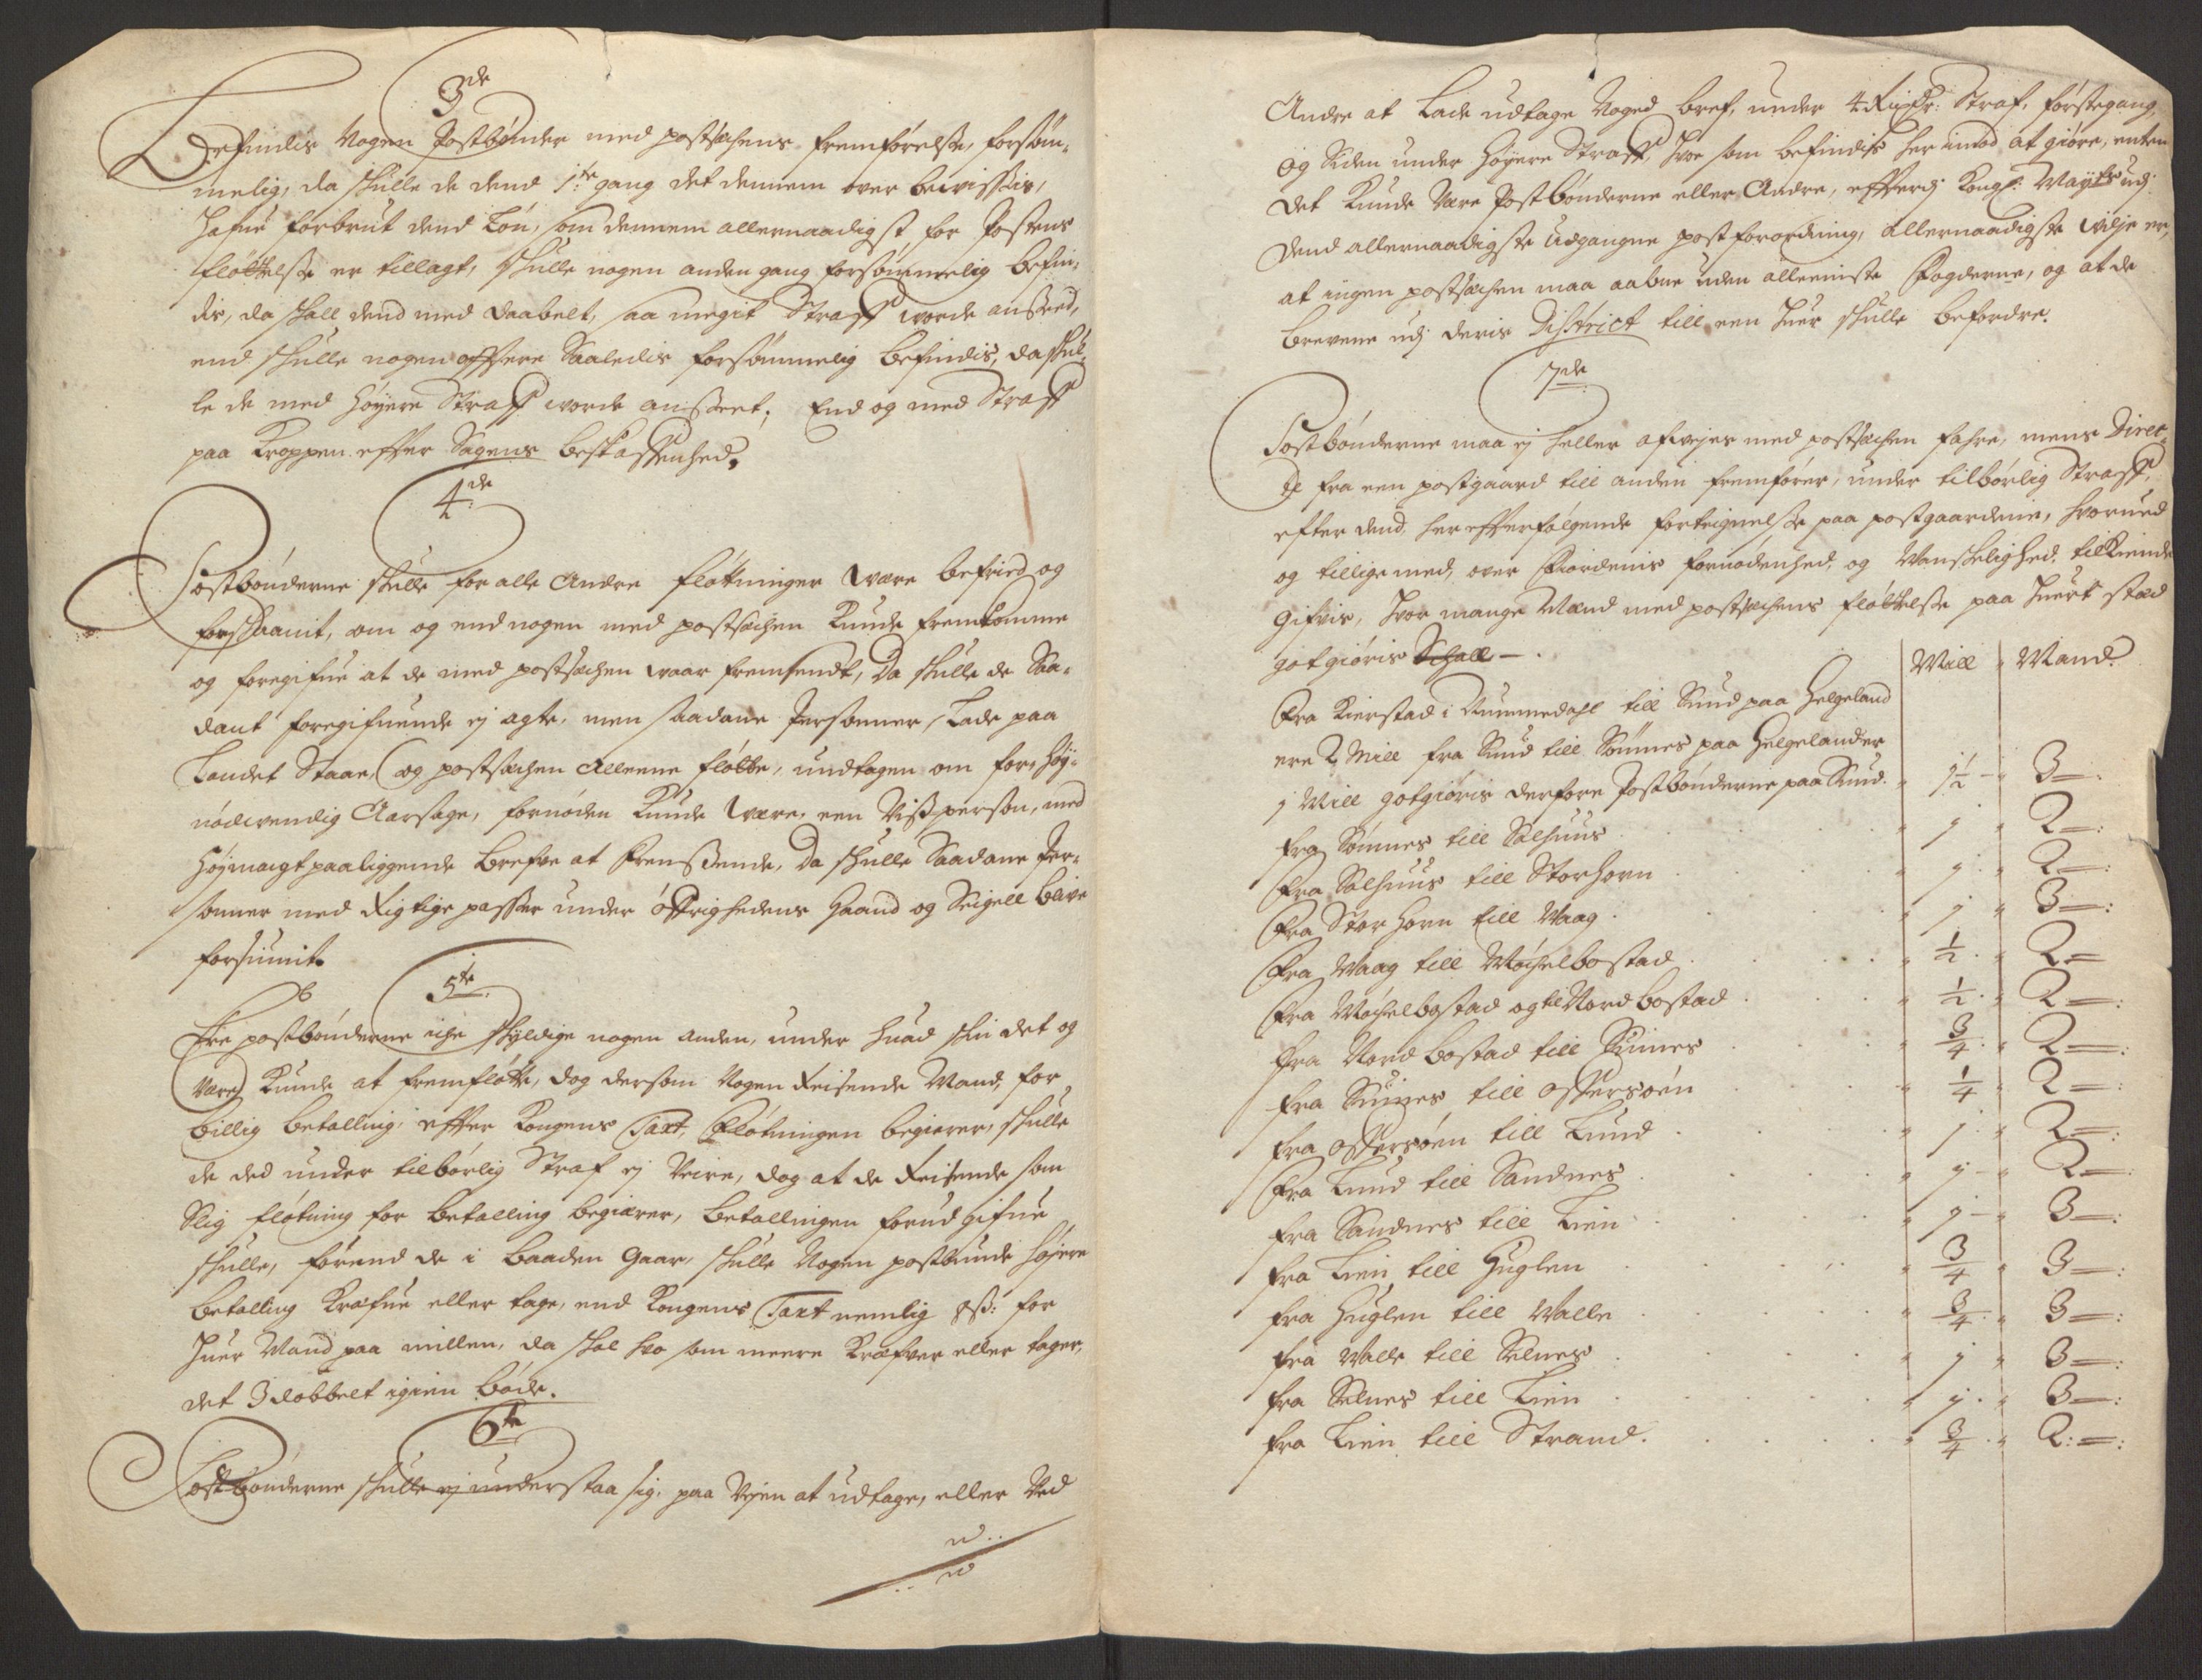 3de
Befindis Nogen Postbónder med postsachens fremfórelsse, forsóm-
melig, da skulle de dend 1te gang det dennem over bewissis,
hafue forbrut dend Lón, som dennem allernaadigst for Postens
flóttelsse er tillagt, skulle nogen anden gang forsómmelig befin-
dis, da skall dend med daabelt, saa megit Straff worde ansseed,
end skulle nogen offtere Saaledis forsómmelig befindis, da skul-
le de med Hóyere Straff worde ansseet, End og med Straff
paa Kroppen effter Sagens beskaffenhed.
4de
Postbónderne skulle for alle Andre flóttninger være befried og
forskaanit, om og end nogen med postsachen Kunde fremkomme
og foregifue at de med postsachen waar fremsendt, Da skulle de Saa-
dant foregifuende ej agte, men saadane Personner, Lade paa
Landet Staae, og postsachen Alleene flótte, undtagen om for, hóy-
nódwendig Aarsage, fornóden Kunde være, een Visse person, med
Hóymagtpaaliggende Brefve at Fremssende, Da skulle Saadane Per-
sonner med Rigtige passer under ófrighedens Haand og Seigell blive
forsiunit.
5te
Ere postbónderne iche skyldige nogen anden, under huad skin det og
være Kunde at fremflótte, dog dersom Nogen Reisende Mand, for
billig betalling, effter Kongens Taxt, Flótningen begierer, skulle
de ded under tilbórlig Straf ej Veire, dog at de Reisende som
Slig flótning for betalling begiærer, betallingen forud gifue
skulle, fórend de i baaden Gaar, skulle Nogen postbunde hójere
betalling Kræfue eller tage, end Kongens Taxt nemlig 8ss: for
huer Mand paa millen, da skal hvo som meere Kræfver eller tager,
det 3dobbelt igien bóde.
6te
Postbónderne skulle ej understaa sig, paa Vejen at udtage, eller Ved
Andre at Lade udtage Noged bref, under 4 Rixdr: Straf, fórstegang,
og Siden under Hóyere Straff, hvo som befindis her imod at gióre, enten
det Kunde være Postbónderne eller Andre, effterdj Kongl: Maytts udj
dend allernaadigste udgangne postforordning, allernaadigste vilje er,
at ingen postsachen maa aabne uden alleeniste Fogderne, og at de
brevene udj deris District till een huer skulle befordre.
7de
Postbónderne maa ej heller afvejes med postsachen fahre, mens Direc-
te fra een postgaard till anden fremfórer, under tilbórlig Straff,
efter dend her effterfólgende fortegnelsse paa postgaardene, hvorved
og tillige med, over Fiordenis fornódenhed, og Vanskelighed, tilkiende
gifvis, hvor mange Mænd med postsachens flóttelsse paa huert stæd
gotgióris Schall —.
Mill Mand
Fra Kierstad i Nummedahl till Sund paa Helgeland
ere 2 Mill fra Sund till Sómnes paa Helgeland er
1 Mill gotgióris derfore Postbónderne paa Sund. 1½ 3
fra Sómnes till Salhuus 1 2
Fra Salhuus till Storhorn 1 2
Fra Storhorn till Vaag 1 3
Fra Vaag till Móchelbostad ½ 2
Fra Móchelbostad og til Nordbostad ½ 2
fra Nordbostad till Suines ¾ 2
fra Suines till Offersóen ¼ 2
fra Offersóen till Lund 1 2
Fra Lund till Sandnes 1 2
fra Sandnes till Lien 1 3
fra Lien till Huglen ¾ 3
fra Huglen till Valle ¾ 3
fra Valle till Selnes 1 3
fra Selnes till Lien 1 3
fra Lien till Strand ¾ 2